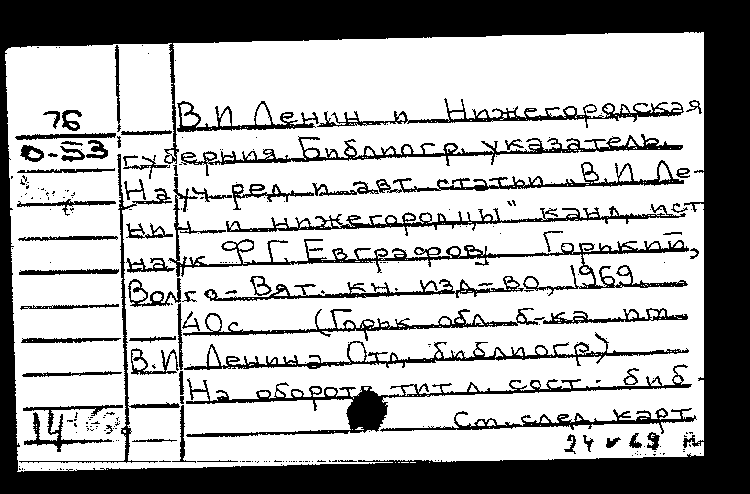 76
0-53
В.И Ленин и Нижегородская
губерния. Библиогр. указатель.
Науч ред. и авт. статьи „В.И Ле-
нин и нижегородцы" канд. ист
наук Ф.Г. Евграфов. Горький,
Волго-Вят. кн. изд-во, 1969.
40с (Горьк обл. б-ка им.
В.И Ленина Отд. библиогр)
На обороте тит л. сост.: биб-
См. след. карт
14
24 V 69